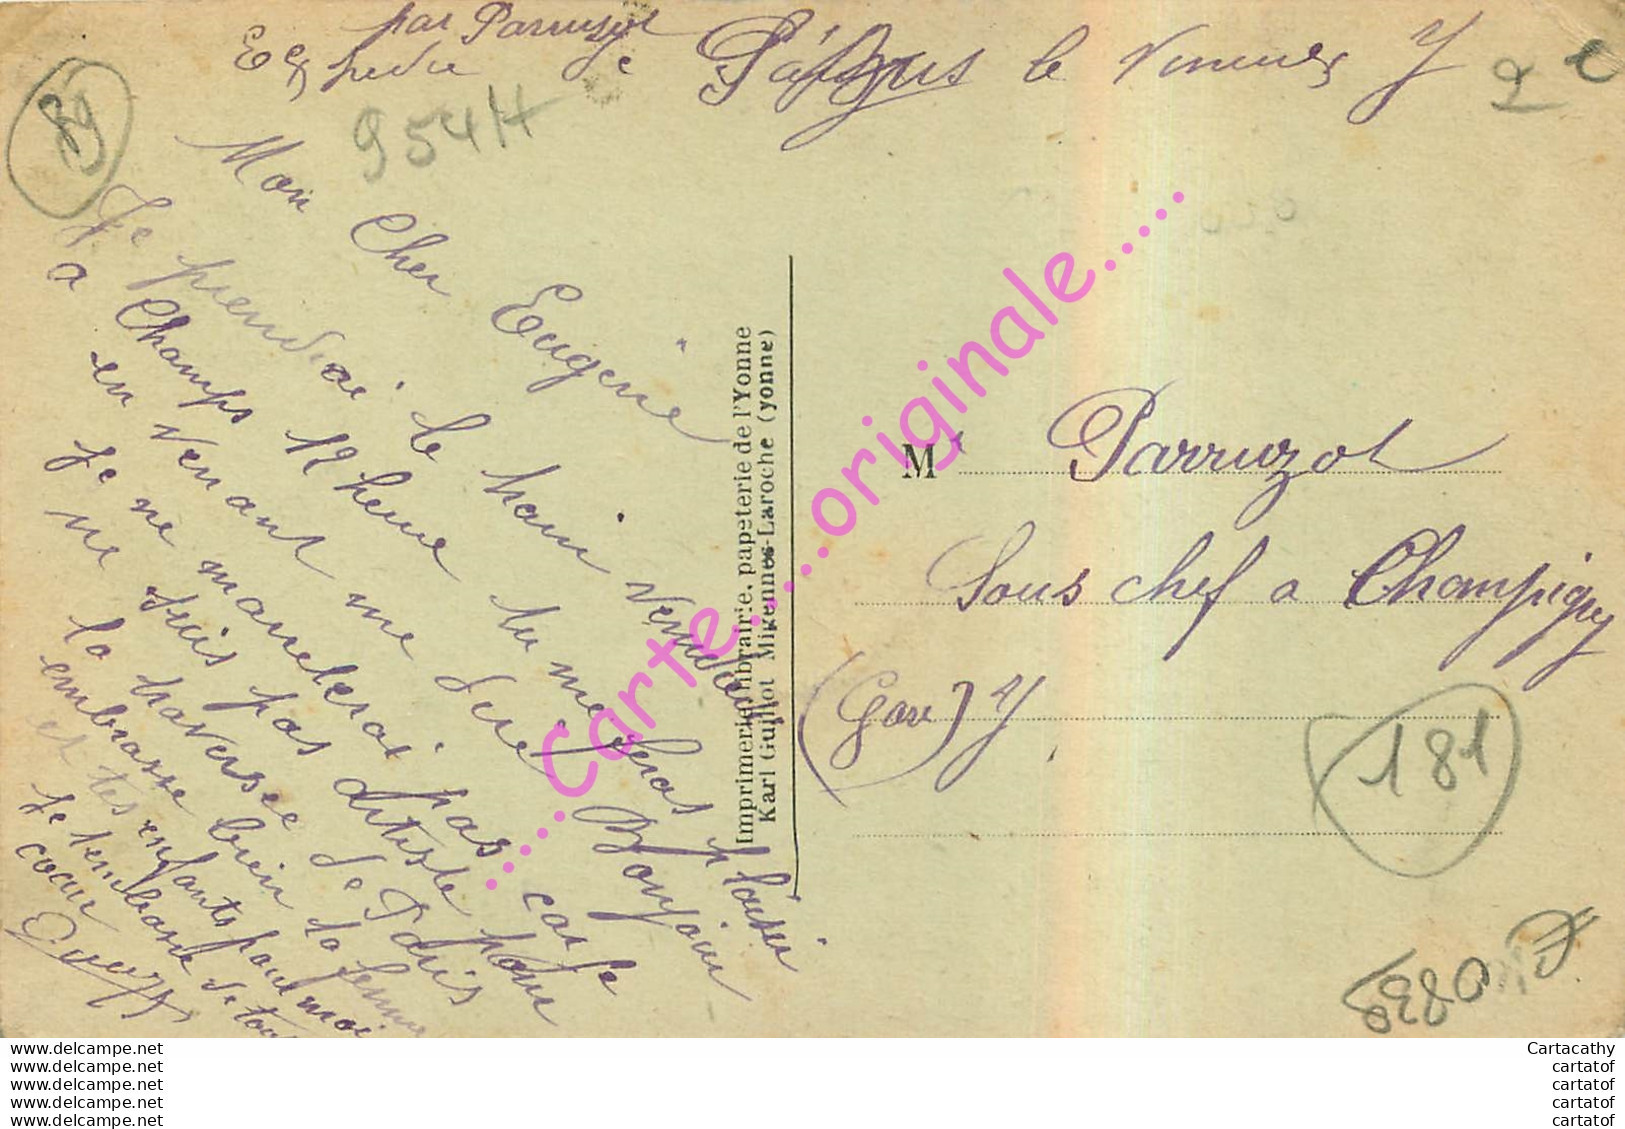 par Parruzot
Expedie le
Pâques le
Y
89
954H
Mon Cher Eugene
Je prendrai le train vendredi
a Champs 12 heure tu me feras plaisir
en venant me dire Bonjour
Je ne manclerai pas car je
ne suis pas artiste pour
la traversée de Paris
embrasse bien ta femme
et tes enfants pour moi
Je t'embrasse de tout
cœur
Imprimerie, librairie, papeterie de l'Yonne
Karl Guillot Migennes-Laroche (yonne)
......Carte......originale......
M Parruzot
Sous chef a Champigny
(Gare) Y
181
www.delcampe.net
www.delcampe.net
www.delcampe.net
www.delcampe.net
www.delcampe.net
Cartacathy
cartatof
cartatof
cartatof
cartatof